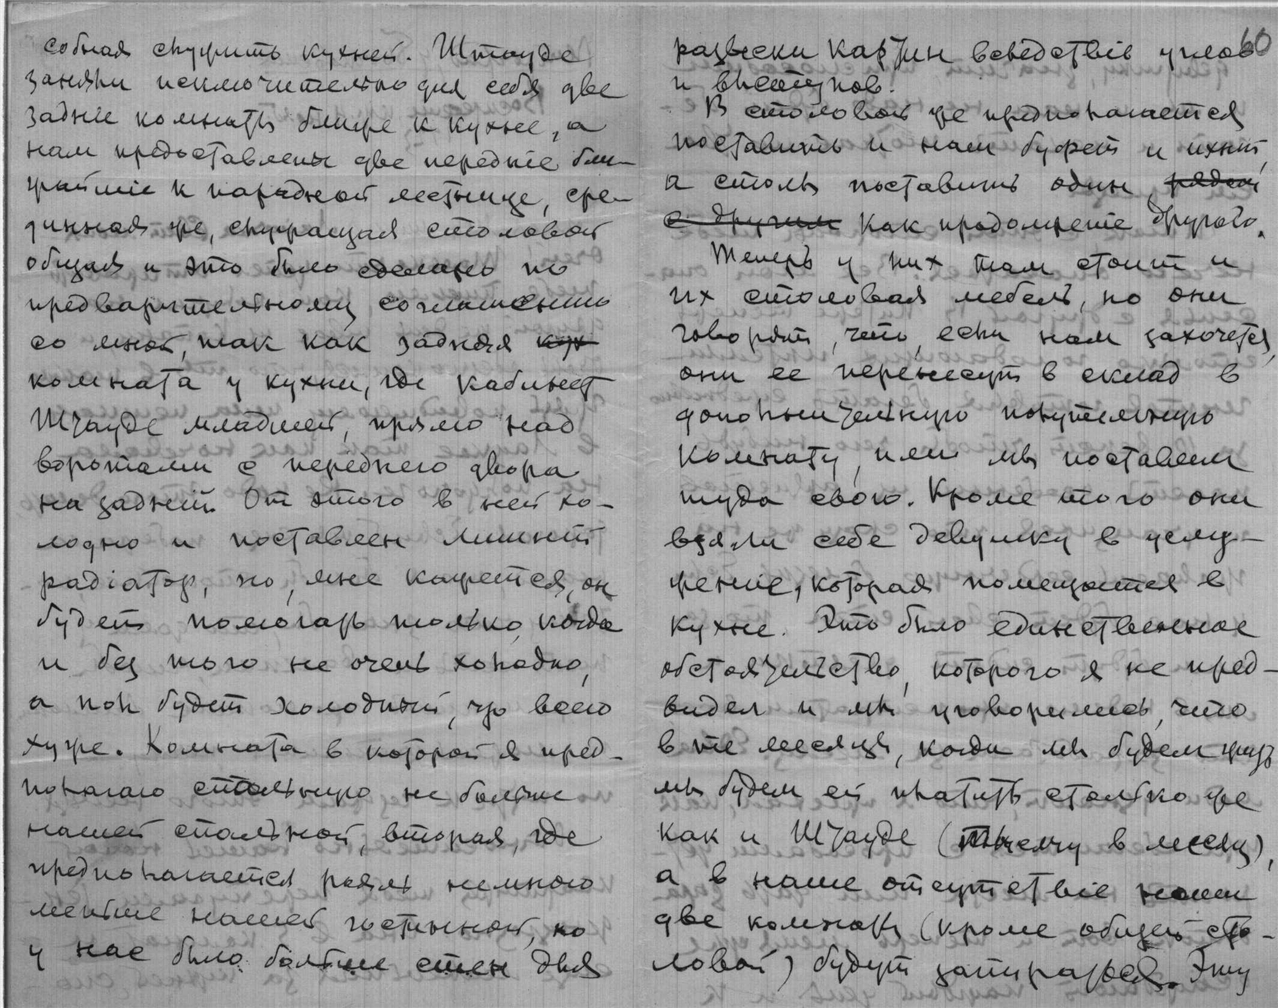 собная служить кухней. Штауде
заняли исключительно для себя две
заднiе комнаты ближе к кухне, а
нам предоставлены две переднiе бли-
жайшiе к парадной лестнице, сре-
динная же, служащая столовой
общая и это было сделано по
предварительному соглашению
со мной, так как задняя кух
комната у кухни, где кабинет
Штауде младшей, прямо над
воротами с переднего двора
на заднiй. От этого в ней хо-
лодно и поставлен лишнiй
радiатор, но, мне кажется, он
будет помогать только, когда
и без того не очень холодно,
а пол будет холодный, что всего
хуже. Комната в которой я пред-
полагаю спальную не больше
нашей спальной, вторая, где
предполагается рояль немного
меньше нашей гостинной, но
у нас было больше стен для
60
развески картин вследствiе углов
и выступов.
В столовой же предполагается
поставить и нам буфет и ихнiй,
а столы поставить один рядом
с другим как продолженiе другого.
Теперь у них там стоит и
их столовая мебель, но они
говорят, что, если нам захочется,
они ее перенесут в склад в
дополнительную
комнату, или мы поставим
туда свою. Кроме того они
взяли себе девушку в услу-
женiе, которая помещается в
кухне. Это было единственное
обстоятельство, которого я не пред-
видел и мы уговорились, что
в те месяцы, когда мы будем жить
мы будем ей платить столько же
как и Штауде (тысячу в месяц),
а в наше отсутствiе наши
две комнаты (кроме общей сто-
ловой) будут запираться. Эту